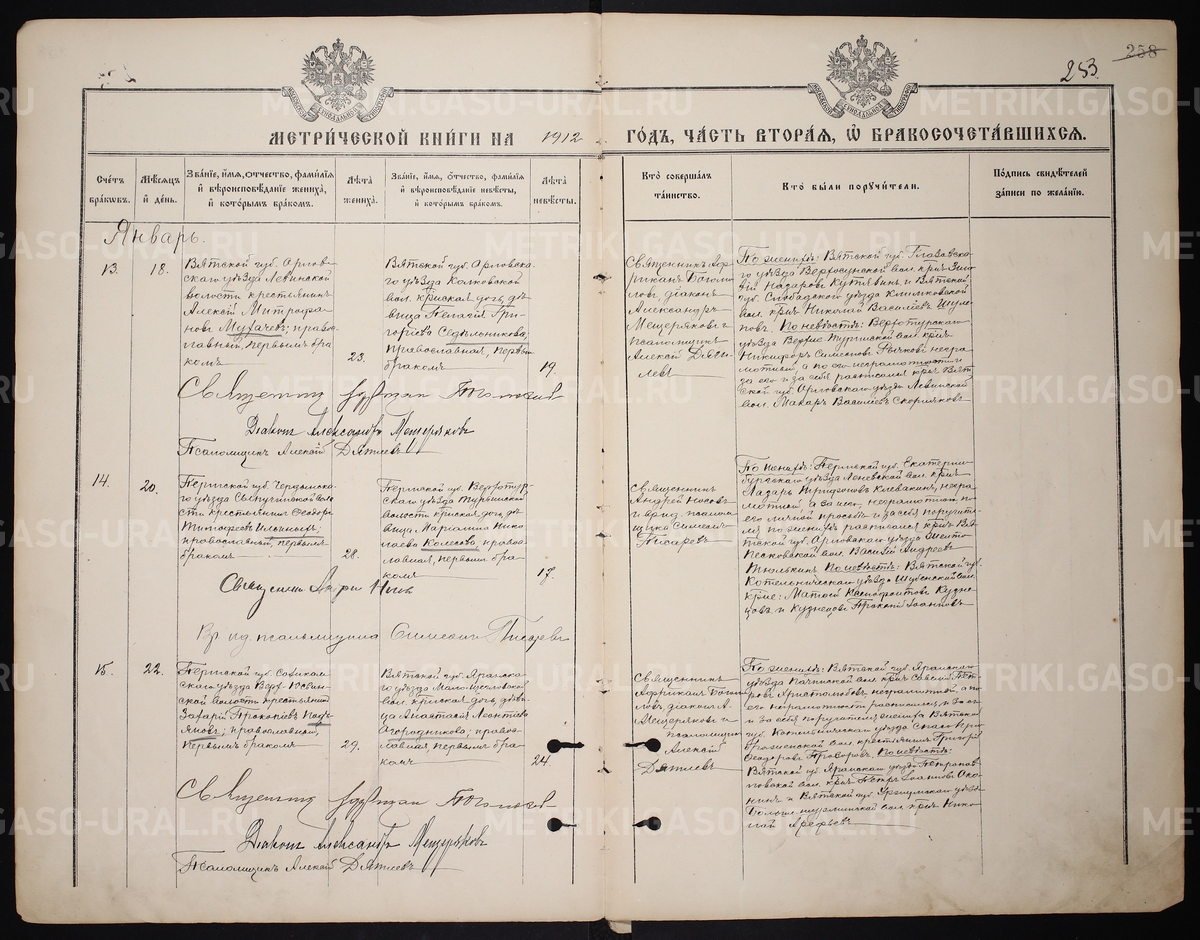 258
253.
МЕТРИ́ЧЕСКОЙ КНИ́ГИ НА 1912 ГО́ДЪ, ЧА́СТЬ ВТОРА́Я, Ѽ БРАКОСОЧЕТА́ВШИХСЯ.
Сче́тъ бра́кѡвъ.
Мѣ́сяцъ и҆ де́нь.
Зва́нїе, и҆́мя, ѻ҆́тчество, фами́лїя и҆ вѣроисповѣ́данїе жениха̀, и҆ кото́рымъ бра́комъ.
Лѣ́та жениха̀.
Зва́нїе, и҆́мя, ѻ҆́тчество, фами́лїя и҆ вѣроисповѣ́данїе невѣ́сты, и҆ кото́рымъ бра́комъ.
Лѣ́та невѣ́сты.
Кто̀ соверша́лъ та́инство.
Кто̀ бы́ли порꙋчи́тели.
По́дпись свидѣ́телей за́писи по жела́нїю.
Январь.
13.
18.
Вятской губ. Орлов-
скаго уѣзда Левинской
волости крестьянинъ
Алексѣй Митрофа-
новъ Мухачевъ; право-
славный, первымъ бра
комъ
23.
Вятской губ. Орловска-
го уѣзда Колковской
вол. крҽская дочь дѣ
вица Пелагія Гри-
горіева Седѣльникова;
православная, первым
бракомъ
19.
Священникъ Аф-
риканъ Богомо
ловъ, діаконъ
Александръ
Мещеряковъ и
псаломщикъ
Алексѣй Дяти-
левъ
По женихѣ: Вятской губ. Глазовска-
го уѣзда Верхосунской вол. крҽ. Зино
вій Назаровъ Кутявинъ и Вятской
губ. Слободскаго уѣзда Климковской
вол. крҽ. Николай Василіевъ Шул
повъ. По невѣстѣ: Верхотурскаго
уѣзда Верхне Туринской вол. крҽ.
Никифоръ Симеоновъ Рычковъ негра
мотный, а по его неграмотности и
за его и за себя расписался крҽ. Вят
ской губ. Орловскаго уѣзда Левинской
вол. Макаръ Василіевъ Скорняковъ
Священникъ Африкан Богомолов
Діаконъ Александръ Мещеряковъ
Псаломщикъ Алексѣй Дятилевъ
14.
20.
Пермской губ. Чердынска-
го уѣзда
сти крестьянинъ Ѳеодоръ
Тимоѳеевъ Ильиныхъ;
православный, первымъ
бракомъ
28.
Пермской губ. Верхотур-
скаго уѣзда Турьинской
волости крҽская дочь дѣ
вица Маріамна Нико
лаева Колесова, право-
славная, первымъ бра-
комъ
17.
Священникъ
Андрей Носовъ
и врид. псалом-
щика Симеонъ
Писаревъ
По женихѣ: Пермской губ. Екатерин-
бургскаго уѣзда Леневской вол. крҽ.
Лазарь Клевакинъ, негра
мотный, а за него, неграмотнаго, по
его личной просьбѣ и за себя поручите
ля по женихѣ расписался крҽ. Вят
ской губ. Орловскаго уѣзда
Песковской вол. Василій Андреевъ
Тюлькинъ. По невѣстѣ: Вятской губ.
Котельническаго уѣзда вол.
крҽ: Матѳей Кузне-
цовъ и Кузнецовъ Прокопій Іоанновъ
Священникъ Андрей Носовъ
Вр. ид. псаломщика Симеонъ Писаревъ
15.
22.
Пермской губ. Соликам-
скаго уѣзда Верх-Юсвин-
ской волости крестьянинъ
Захарій Прокопіевъ Подъ
яновъ; православный,
первымъ бракомъ
29.
Вятской губ. Яранска-
го уѣзда
вол. крҽская дочь дѣви-
ца Анастасія Леонтіева
Огородникова; право-
славная, первымъ бра-
комъ
24
Священникъ
Африканъ Богомо
ловъ, діаконъ А.
Мещеряковъ и
псаломщикъ
Алексѣй
Дятилевъ
По женихѣ: Вятской губ. Яранскаго
уѣзда вол. крҽ. Савелій Пет
ровъ неграмотный, а по
его неграмотности расписался, и за его
и за себя поручителя жениха Вятской
губ. Котельническаго уѣзда
вол. крестьянинъ Григорій
Ѳеодоровъ По невѣстѣ:
Вятской губ. Яранскаго уѣзда Петропав-
ловской вол. крҽ. Петръ Іоанновъ Ока-
нинъ и Вятской губ. Уржумскаго уѣзда
вол. крҽ. Нико-
лай Арефьевъ
Священникъ Африкан Богомолов
Діаконъ Александръ Мещеряковъ
Псаломщикъ Алексѣй Дятилевъ
METRIKI.GASO-URAL.RU